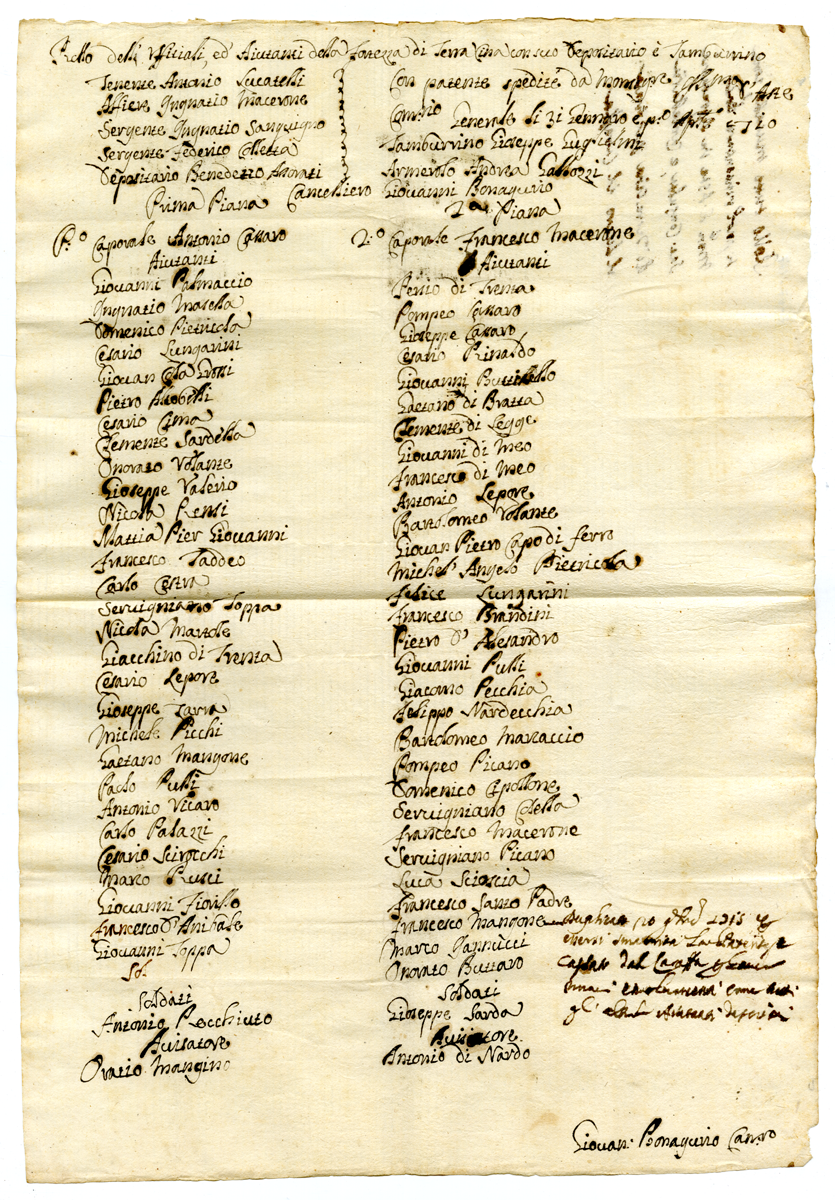 Rollo delli Uffitiali, ed' Aiutanti della Fortezza di Terracina con suo Depositario e Tamburrino
Tenente Antonio Lucatelli
Alfiere Ingnatio Macerone
Sergente Ingnatio Sanguigno
Sergente Federico Colletta
Depositario Benedetto Anorati
Con patente spedite da Monsigre
Comrio Generale li 31 Gennaro e po 1710
Tamburrino Gioseppe Guglielmi
Armerolo Andrea Gallozzi
Cancelliero Giovanni Bonagurio
Prima Piana
Po Caporale Antonio Cassaro
Aiutanti
Giovanni Palmaccio
Ingnatio Masella
Domenico Pietricola
Cesario Lungarini
Giovan Cola Grossi
Pietro Iacobelli
Cesario Cima
Clemente Sardella
Onorato Volante
Gioseppe Valerio
Nicola Rensi
Mattia Pier Giovanni
Francesco Taddeo
Carlo Cestra
Servigniano Toppa
Nicola Martole
Giacchino di Trenta
Cesario Lepore
Gioseppe Zarra
Michele Picchi
Gaetano Mangone
Paolo Pulli
Antonio Vicaro
Carlo Palazzi
Cesario Scirocchi
Marco Rusci
Giovanni Fiorillo
Francesco d'Anibale
Giovanni Toppa
Sol
Soldati
Antonio Pecchiuto
Avisatore
Oratio Mangino
2a Piana
2o Caporale Francesco Macerone
Aiutanti
Persio di Trenta
Pompeo Cassaro
Gioseppe Cassaro
Cesario Rinaldo
Giovanni Buttiello
Gaetano di Bratta
Clemente di Legge
Giovanni di Meo
Francesco di Meo
Antonio Lepore
Bartolomeo Volante
Giovan Pietro Capo di ferro
Michel' Angelo Pietricola
Felice Lungarini
Francesco Brandini
Pietro d' Alesandro
Giovanni Pulli
Giacomo Pecchia
Felippo Nardecchia
Bartolomeo Marzaccio
Pompeo Picano
Domenico Cipollone
Servigniano Colella
Francesco Macerone
Servigniano Picano
Luca Scioscia
Francesco Santo Padre
Francesco Mangone
Marco Iannucci
Onorato Buttaro
Soldati
Gioseppe Sarda
Avisatore
Antonio di Nardo
1715
Giovan: Bonagurio Canro